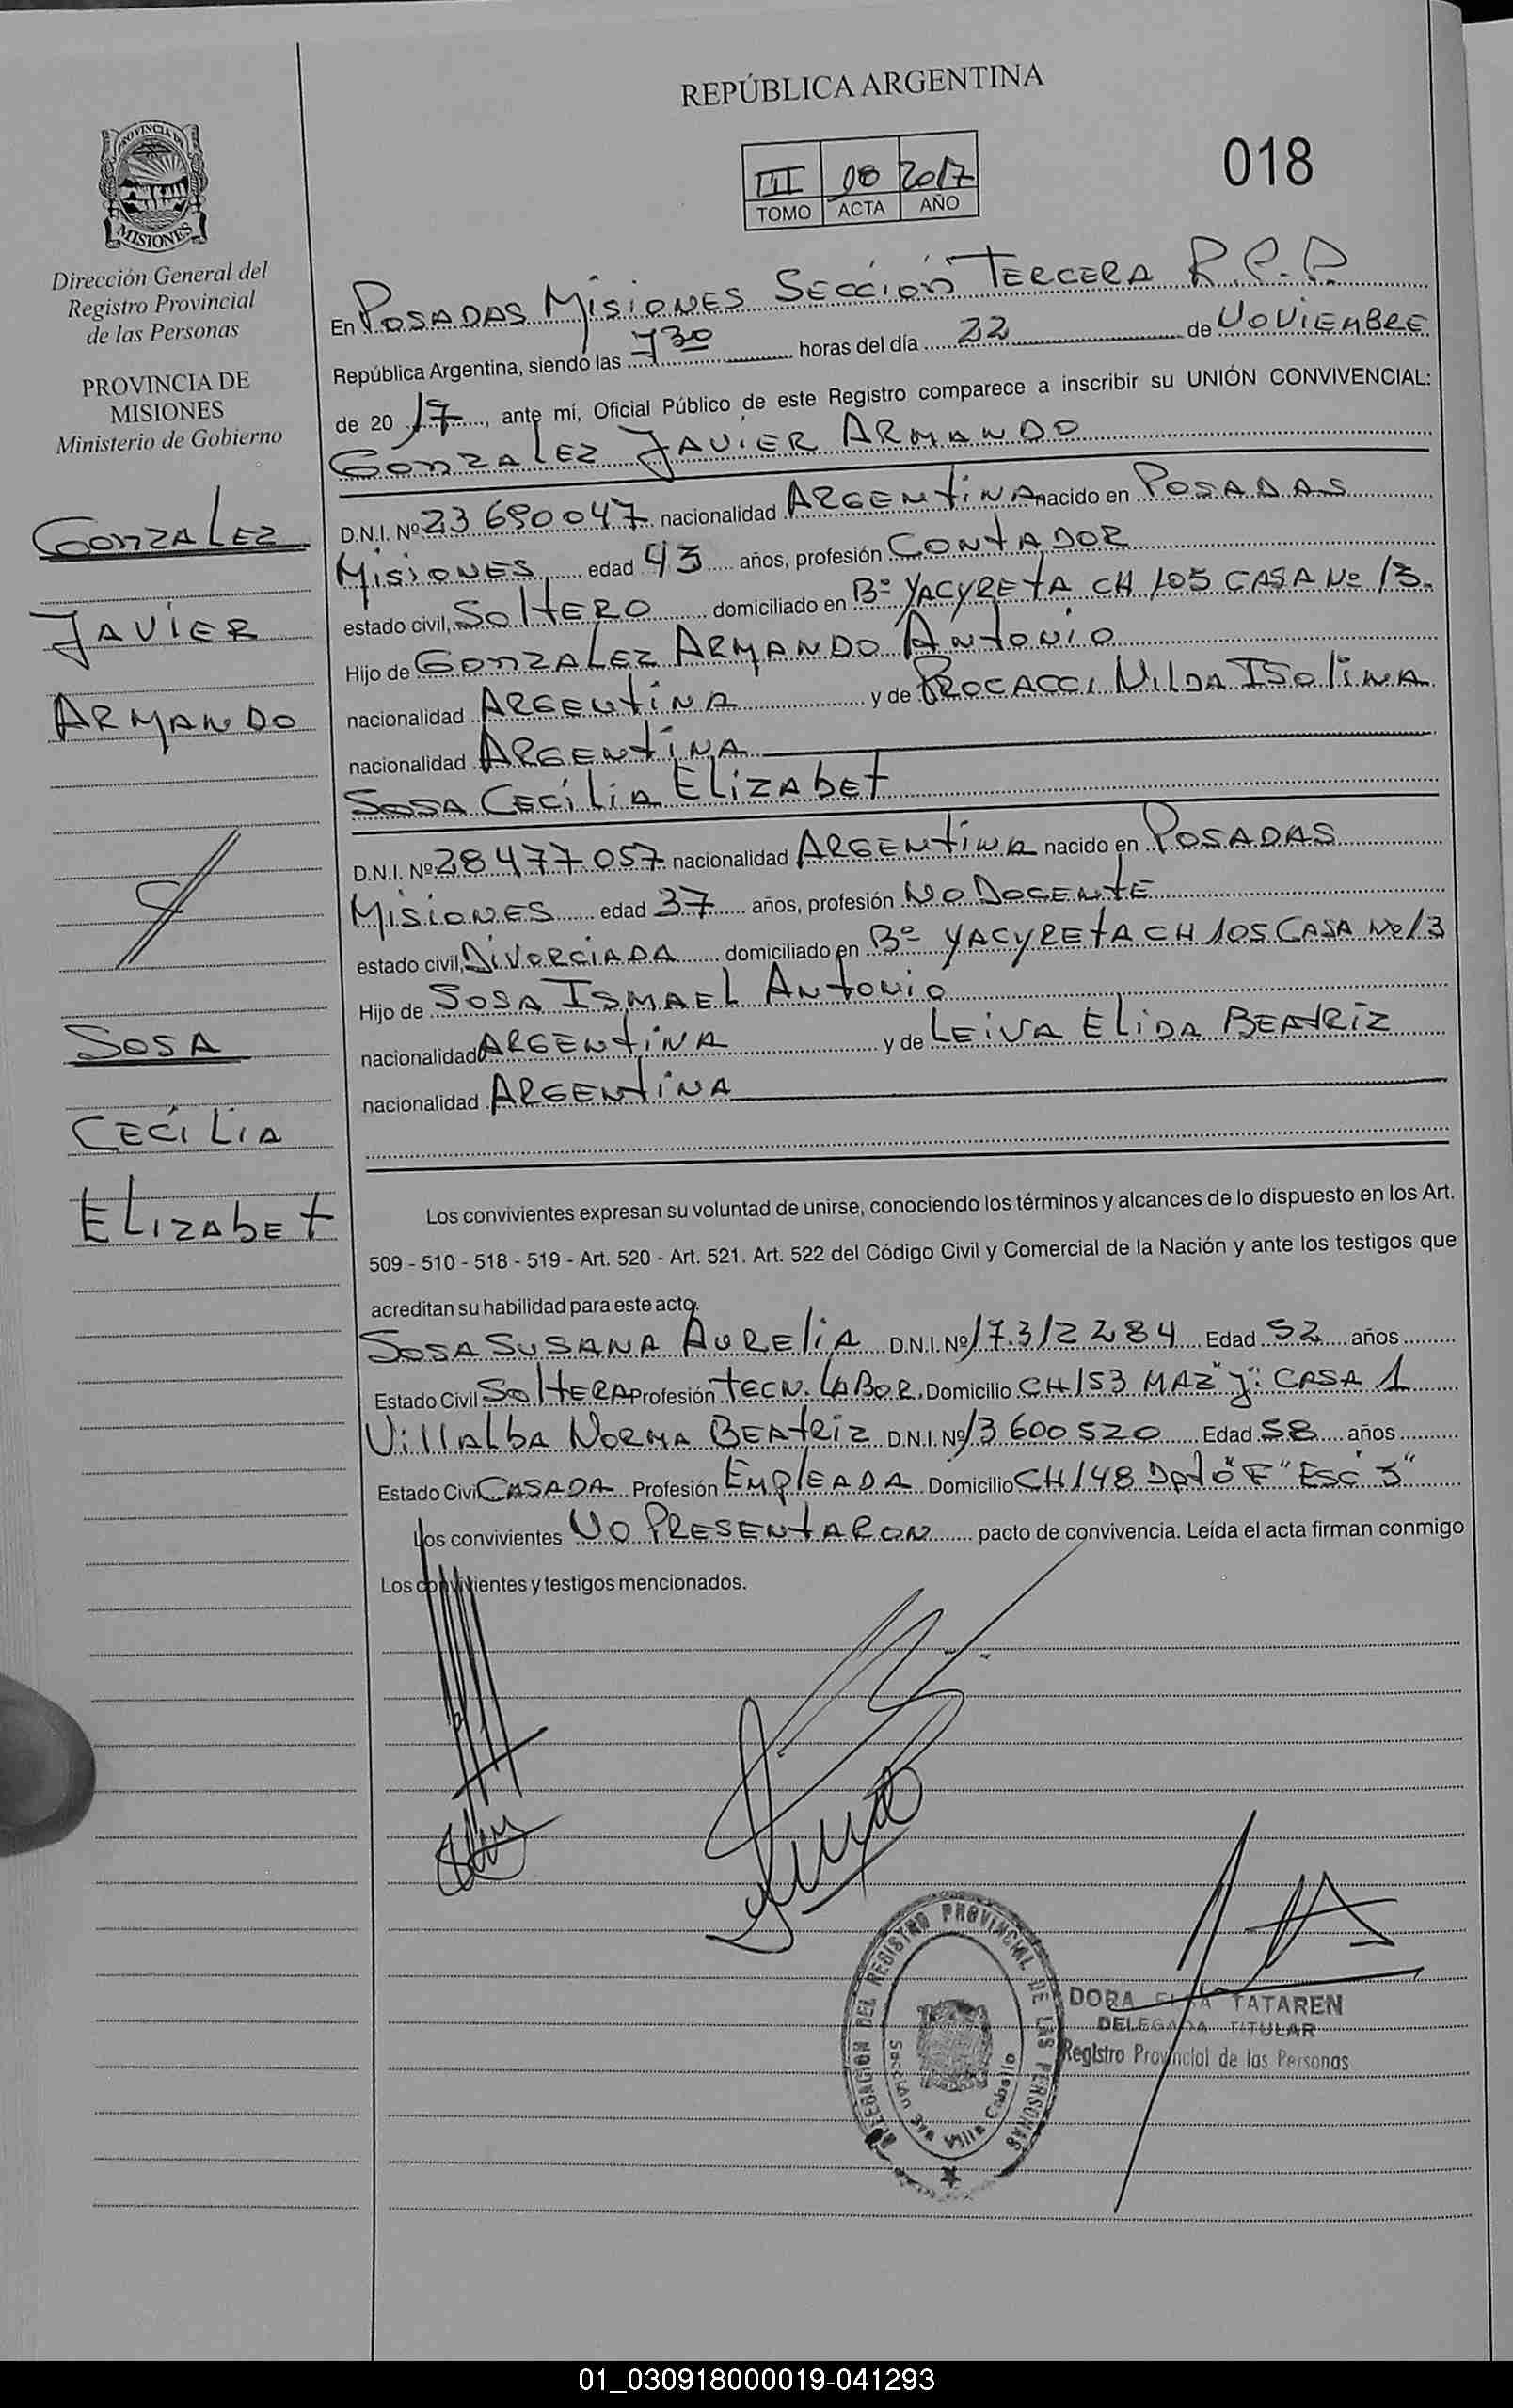 REPÚBLICA ARGENTINA
018
III 2017
TOMO ACTA AÑO
PROVINCIA DE
MISIONES
Dirección General del
Registro Provincial
de las Personas
PROVINCIA DE
MISIONES
Ministerio de Gobierno
GONZALEZ
JAVIER
ARMANDO
SOSA
CECILIA
ELIZABET
En POSADAS MISIONES SECCIÓN TERCERA R.P.P.
República Argentina, siendo las 7 30 horas del día 22 de NOVIEMBRE
de 20 17, ante mí, Oficial Público de este Registro comparece a inscribir su UNIÓN CONVIVENCIAL:
GONZALEZ JAVIER ARMANDO
D.N.I. Nº 23 690047 nacionalidad ARGENTINA nacido en POSADAS
MISIONES edad 43 años, profesión CONTADOR
estado civil, SOLTERO domiciliado en Bº YACYRETA CH 105 CASA Nº 13.
Hijo de GONZALEZ ARMANDO ANTONIO
nacionalidad ARGENTINA y de PROCACCI NILDA ISOLINA
nacionalidad ARGENTINA
SOSA CECILIA ELIZABET
D.N.I. Nº 28 477 057 nacionalidad ARGENTINA nacido en POSADAS
MISIONES edad 37 años, profesión NO DOCENTE
estado civil, DIVORCIADA domiciliado en Bº YACYRETA CH 105 CASA Nº 13
Hijo de SOSA ISMAEL ANTONIO
nacionalidad ARGENTINA y de LEIVA ELIDA BEATRIZ
nacionalidad ARGENTINA
Los convivientes expresan su voluntad de unirse, conociendo los términos y alcances de lo dispuesto en los Art.
509 - 510 - 518 - 519 - Art. 520 - Art. 521. Art. 522 del Código Civil y Comercial de la Nación y ante los testigos que
acreditan su habilidad para este acto.
SOSA SUSANA AURELIA D.N.I. Nº 17.312284 Edad 52 años
Estado Civil SOLTERA Profesión TECN. LABOR. Domicilio CH 153 MAZ "J" CASA 1
VILLALBA NORMA BEATRIZ D.N.I. Nº 13 600 520 Edad 58 años
Estado Civil CASADA Profesión EMPLEADA Domicilio CH 148 Dpto "F" ESC "3"
Los convivientes NO PRESENTARON pacto de convivencia. Leída el acta firman conmigo
Los convivientes y testigos mencionados.
DELEGACION DEL REGISTRO PROVINCIAL DE LAS PERSONAS
Sección 3ra Villa Cabello
DORA ELSA TATAREN
DELEGADA TITULAR
Registro Provincial de las Personas
01_030918000019-041293